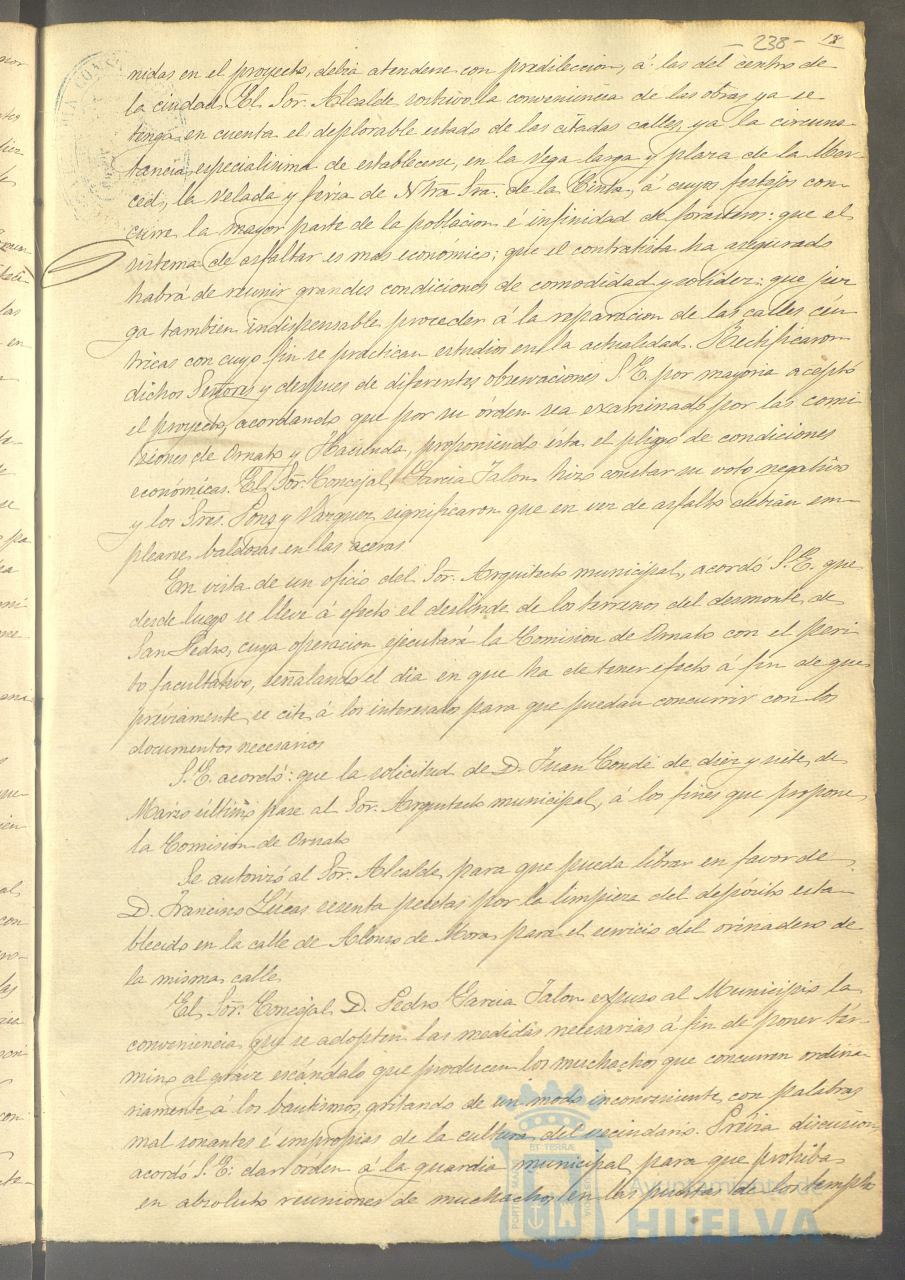 238- 18
nidas en el proyecto, debia atenderse con predileccion, á las del centro de
la ciudad. El Sor. Alcalde sostuvo la conveniencia de las obras ya se
tenga en cuenta el deplorable estado de las citadas calles, ya la circuns-
tancia especialisima de establecerse, en la Vega larga y plaza de la Mer-
ced, la velada y feria de Ntra. Sra. de la Cinta, á cuyos festejos con-
curre la mayor parte de la poblacion é infinidad de forasteros: que el
sistema de asfaltar es mas económico; que el contratista ha asegurado
habrá de reunir grandes condiciones de comodidad y solidez: que juz
ga tambien indispensable proceder á la reparacion de las calles cén
tricas con cuyo fin se practican estudios en la actualidad. Rectificaron
dichos Señores y despues de diferentes observaciones S.E. por mayoria aceptó
el proyecto, acordando que por su órden sea examinado por las comi
siones de Ornato y Hacienda, proponiendo ésta el pliego de condiciones
económicas. El Sor. Concejal Garcia Jalon hizo constar su voto negativo
y los Sres. Pons y Vazquez significaron que en vez de asfalto debian em-
plearse baldozas en las aceras
En vista de un oficio del Sor. Arquitecto municipal, acordó S.E. que
desde luego se lleve á efecto el deslinde de los terrenos del desmonte de
San Pedro, cuya operacion ejecutará la Comision de Ornato con el peri
to facultativo, señalando el dia en que ha de tener efecto á fin de que
préviamente se cite á los interesados para que puedan concurrir con los
documentos necesarios
S.E. acordó: que la solicitud de D. Juan Conde de diez y siete de
Marzo último pase al Sor. Arquitecto municipal, á los fines que propone
la Comision de Ornato
Se autorizó al Sor. Alcalde para que pueda librar en favor de
D. Francisco Lucas sesenta pesetas por la limpieza del depósito esta-
blecido en la calle de Alonso de Mora para el servicio del orinadero de
la misma calle
El Sor. Concejal D. Pedro Garcia Jalon expuso al Municipio la
conveniencia que se adopten las medidas necesarias á fin de poner tér-
mino al grave escándalo que producen los muchachos que concurren ordina-
riamente á los bautismos, gritando de un modo inconveniente con palabras
mal sonantes é impropias de la cultura del vecindario. Prévia discusion
acordó S.E: dar órden á la guardia municipal para que prohiba
en absoluto reuniones de muchachos en las puertas de los templos
Ayuntamiento de
HUELVA